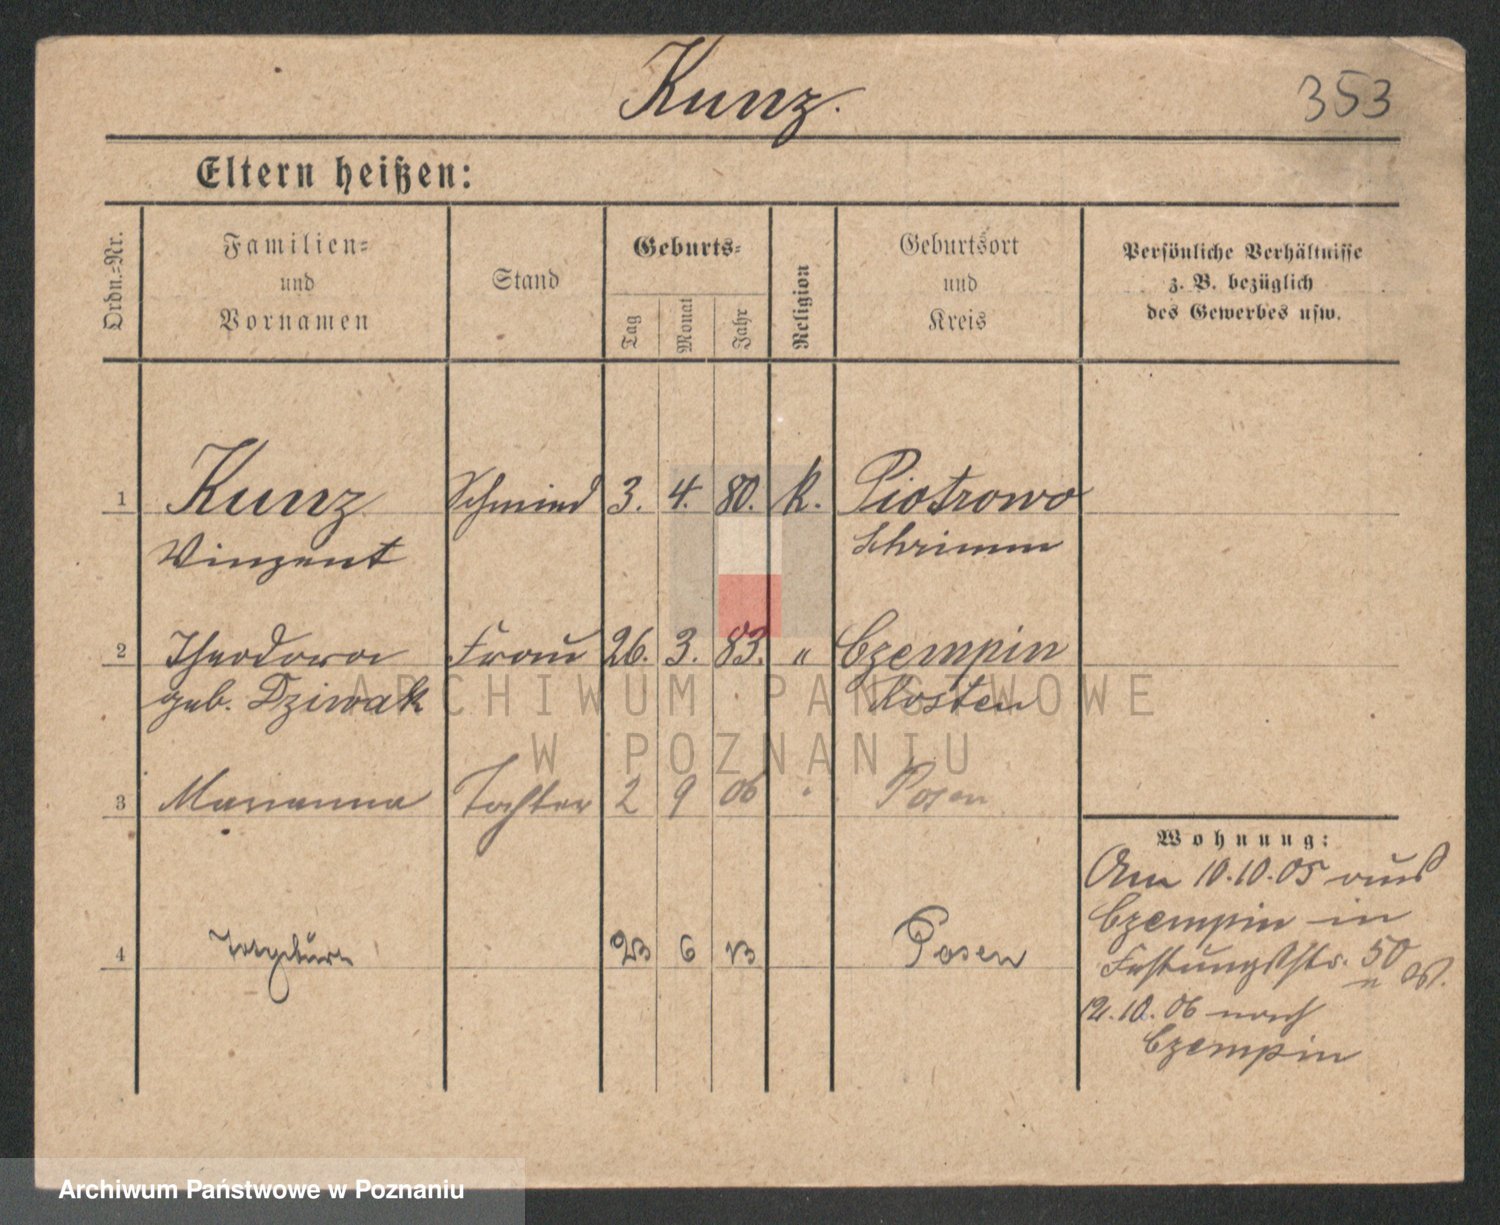 Kunz.
353
Eltern heißen:
Ordn.=Nr.
Familien=
und
Vornamen
Stand
Geburts=
Tag
Monat
Jahr
Religion
Geburtsort
und
Kreis
Persönliche Verhältnisse
z. B. bezüglich
des Gewerbes usw.
1 Kunz Schmied 3. 4. 80. k. Piotrowo
Vinzent Schrimm
2 Theodora Frau 26. 3. 83. " Czempin
geb. Dziwak Kosten
3 Marianna Tochter 2 9 06 " Posen
Wohnung:
Am 10.10.05 aus
Czempin in
Festungsstr. 50
12.10.06 nach
Czempin
4 23 6 13 Posen
ARCHIWUM PAŃSTWOWE
W POZNANIU
Archiwum Państwowe w Poznaniu